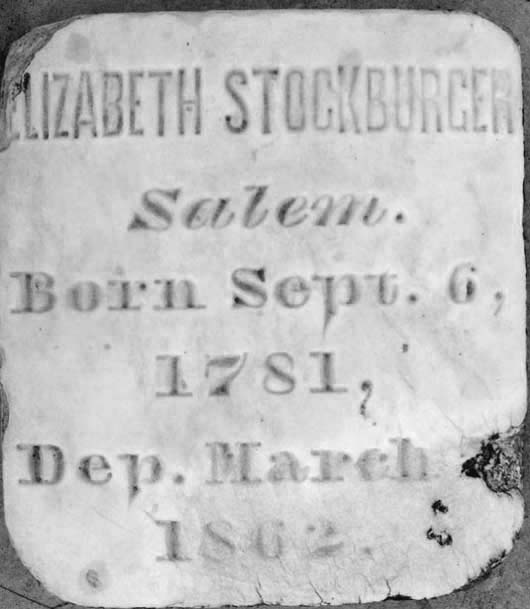 ELIZABETH STOCKBURGER
Salem.
Born Sept. 6,
1781,
Dep. March
1862.